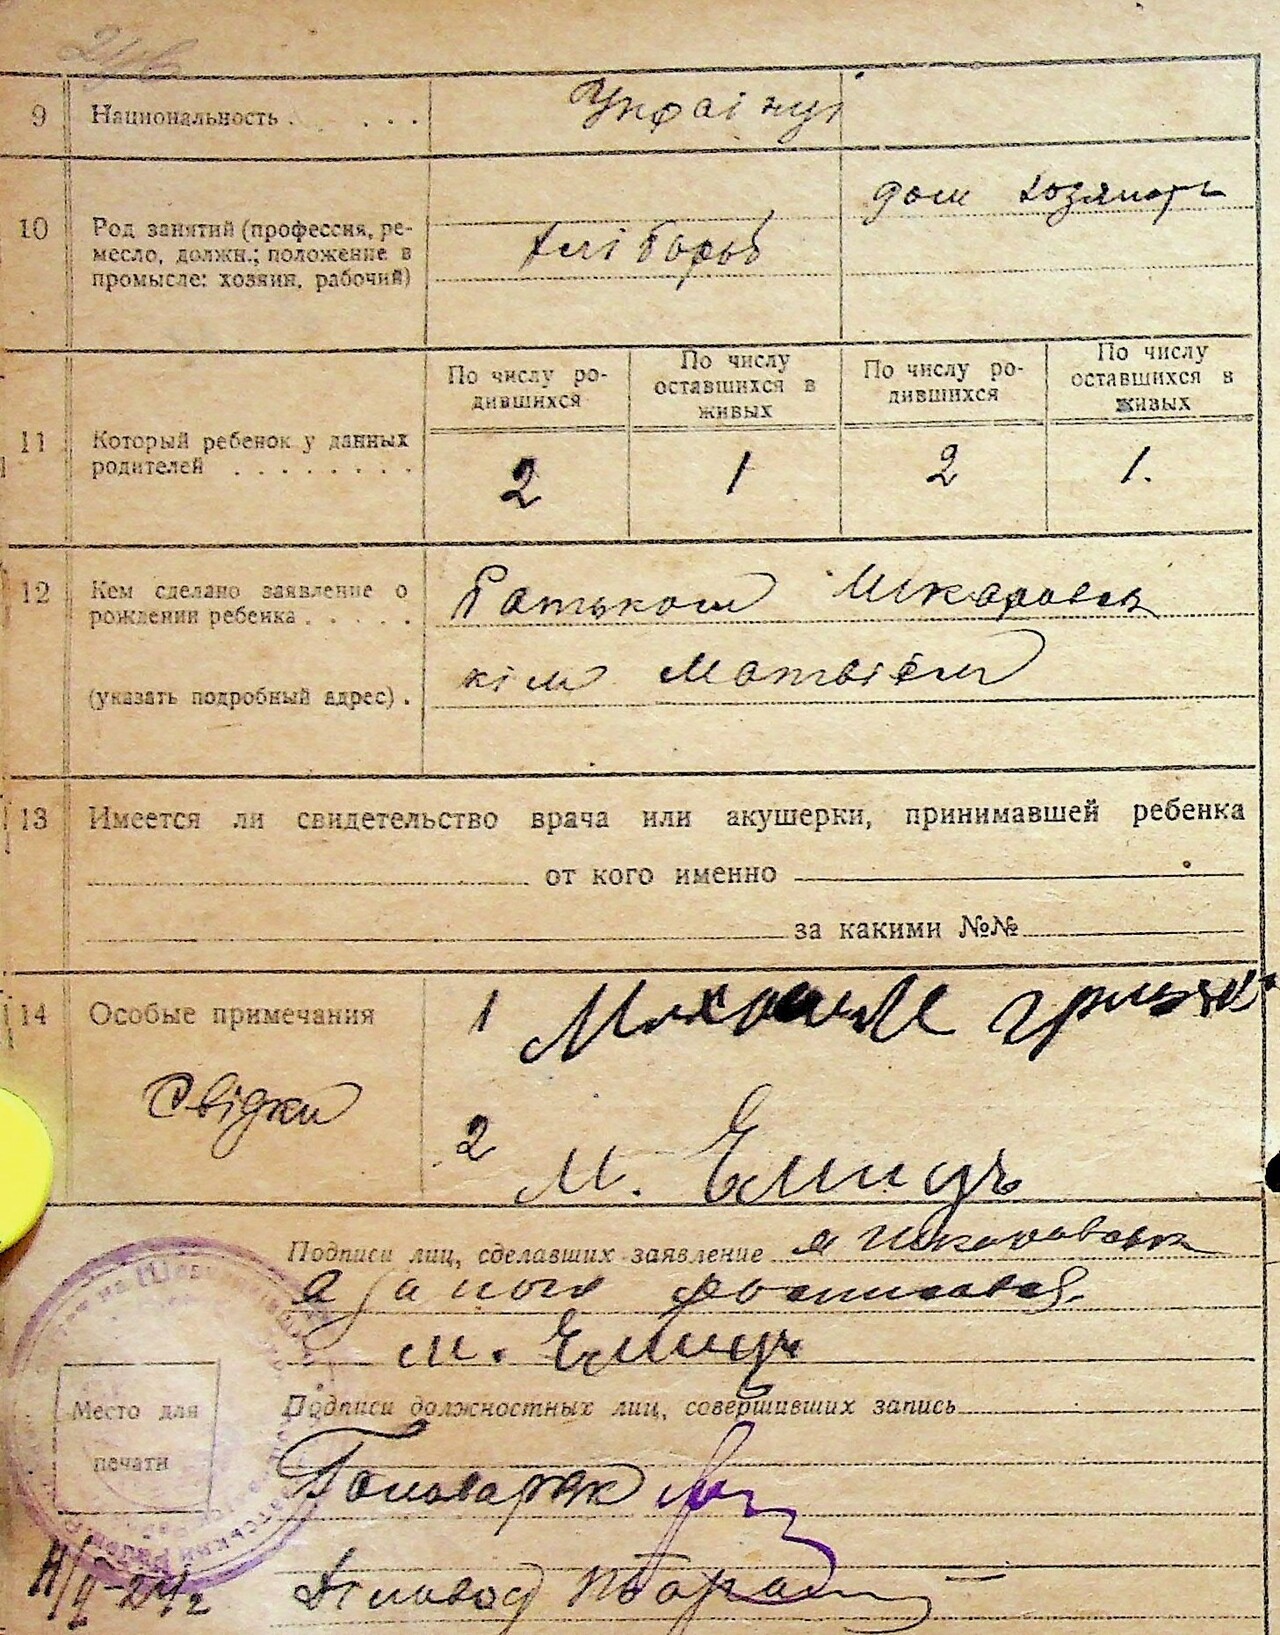 9 Национальность . . . . . Українці
10 Род занятий (профессия, ре-
месло, должн.; положение в
промысле: хозяин, рабочий)
хлібороб
дом хозяйств
По числу ро-
дившихся
По числу
оставшихся в
живых
По числу ро-
дившихся
По числу
оставшихся в
живых
11 Который ребенок у данных
родителей . . . . . . . .
2 1 2 1.
12 Кем сделано заявление о
рождении ребенка . . . . .
Батьком Шкаровсь
кім Матвієм
(указать подробный адрес) .
13 Имеется ли свидетельство врача или акушерки, принимавшей ребенка
от кого именно
за какими №№
14 Особые примечания
Свідки
1
2 М. Ємець
Подписи лиц, сделавших заявление
М. Ємець
Подписи должностных лиц, совершивших запись
Место для
печати
Діловод